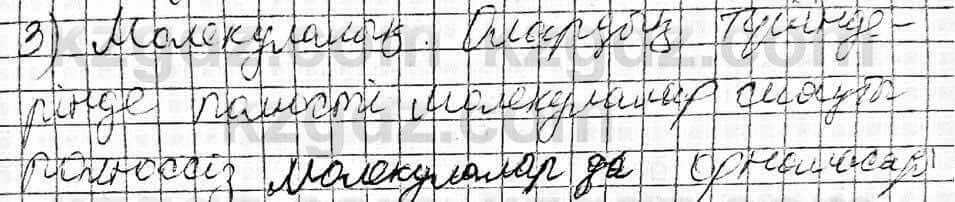 3) Молекулалық. Олардың түйінде-
рінде полюсті молекулалар сияқты
полюссіз молекулалар да орналасар
kzgdz.com